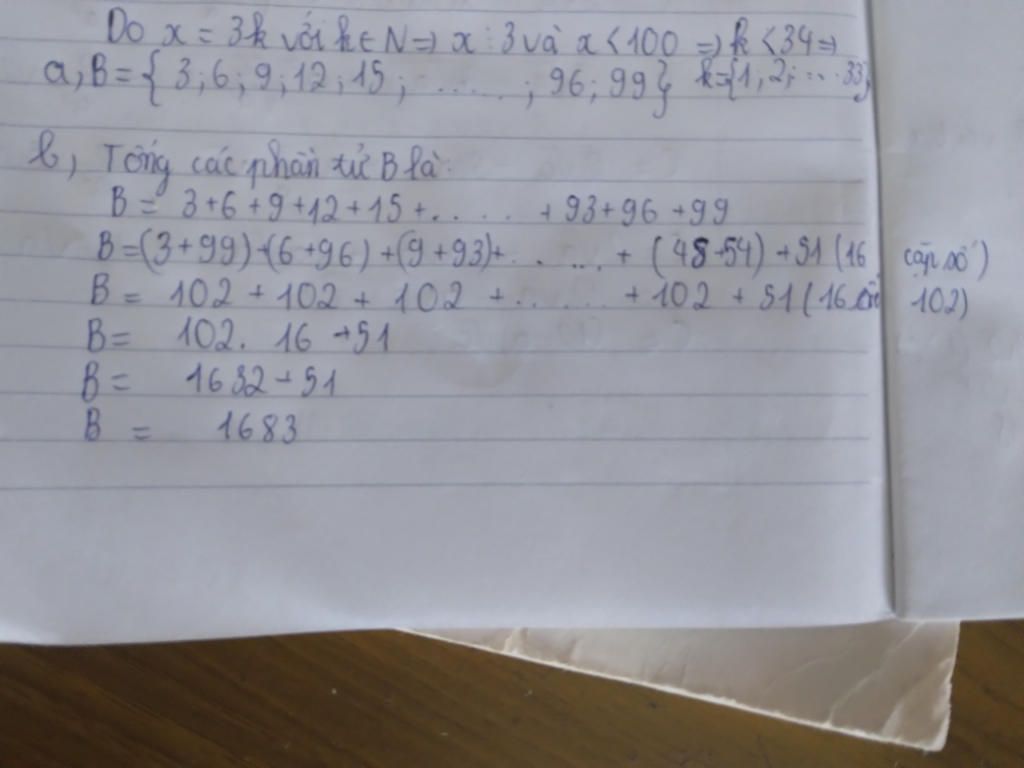 Do x = 3k với k ∈ N => x ⋮ 3 và x < 100 => k < 34 =>
a, B = { 3; 6; 9; 12; 15; ......; 96; 99} k = {1; 2; ... 33}
b, Tổng các phần tử B là:
B = 3+6+9+12+15+..... +93+96+99
B = (3+99)+(6+96)+(9+93)+...... + (48+54) + 51 (16 cặp số)
B = 102 + 102 + 102 + ...... + 102 + 51 (16 102)
B = 102. 16 + 51
B = 1632 + 51
B = 1683